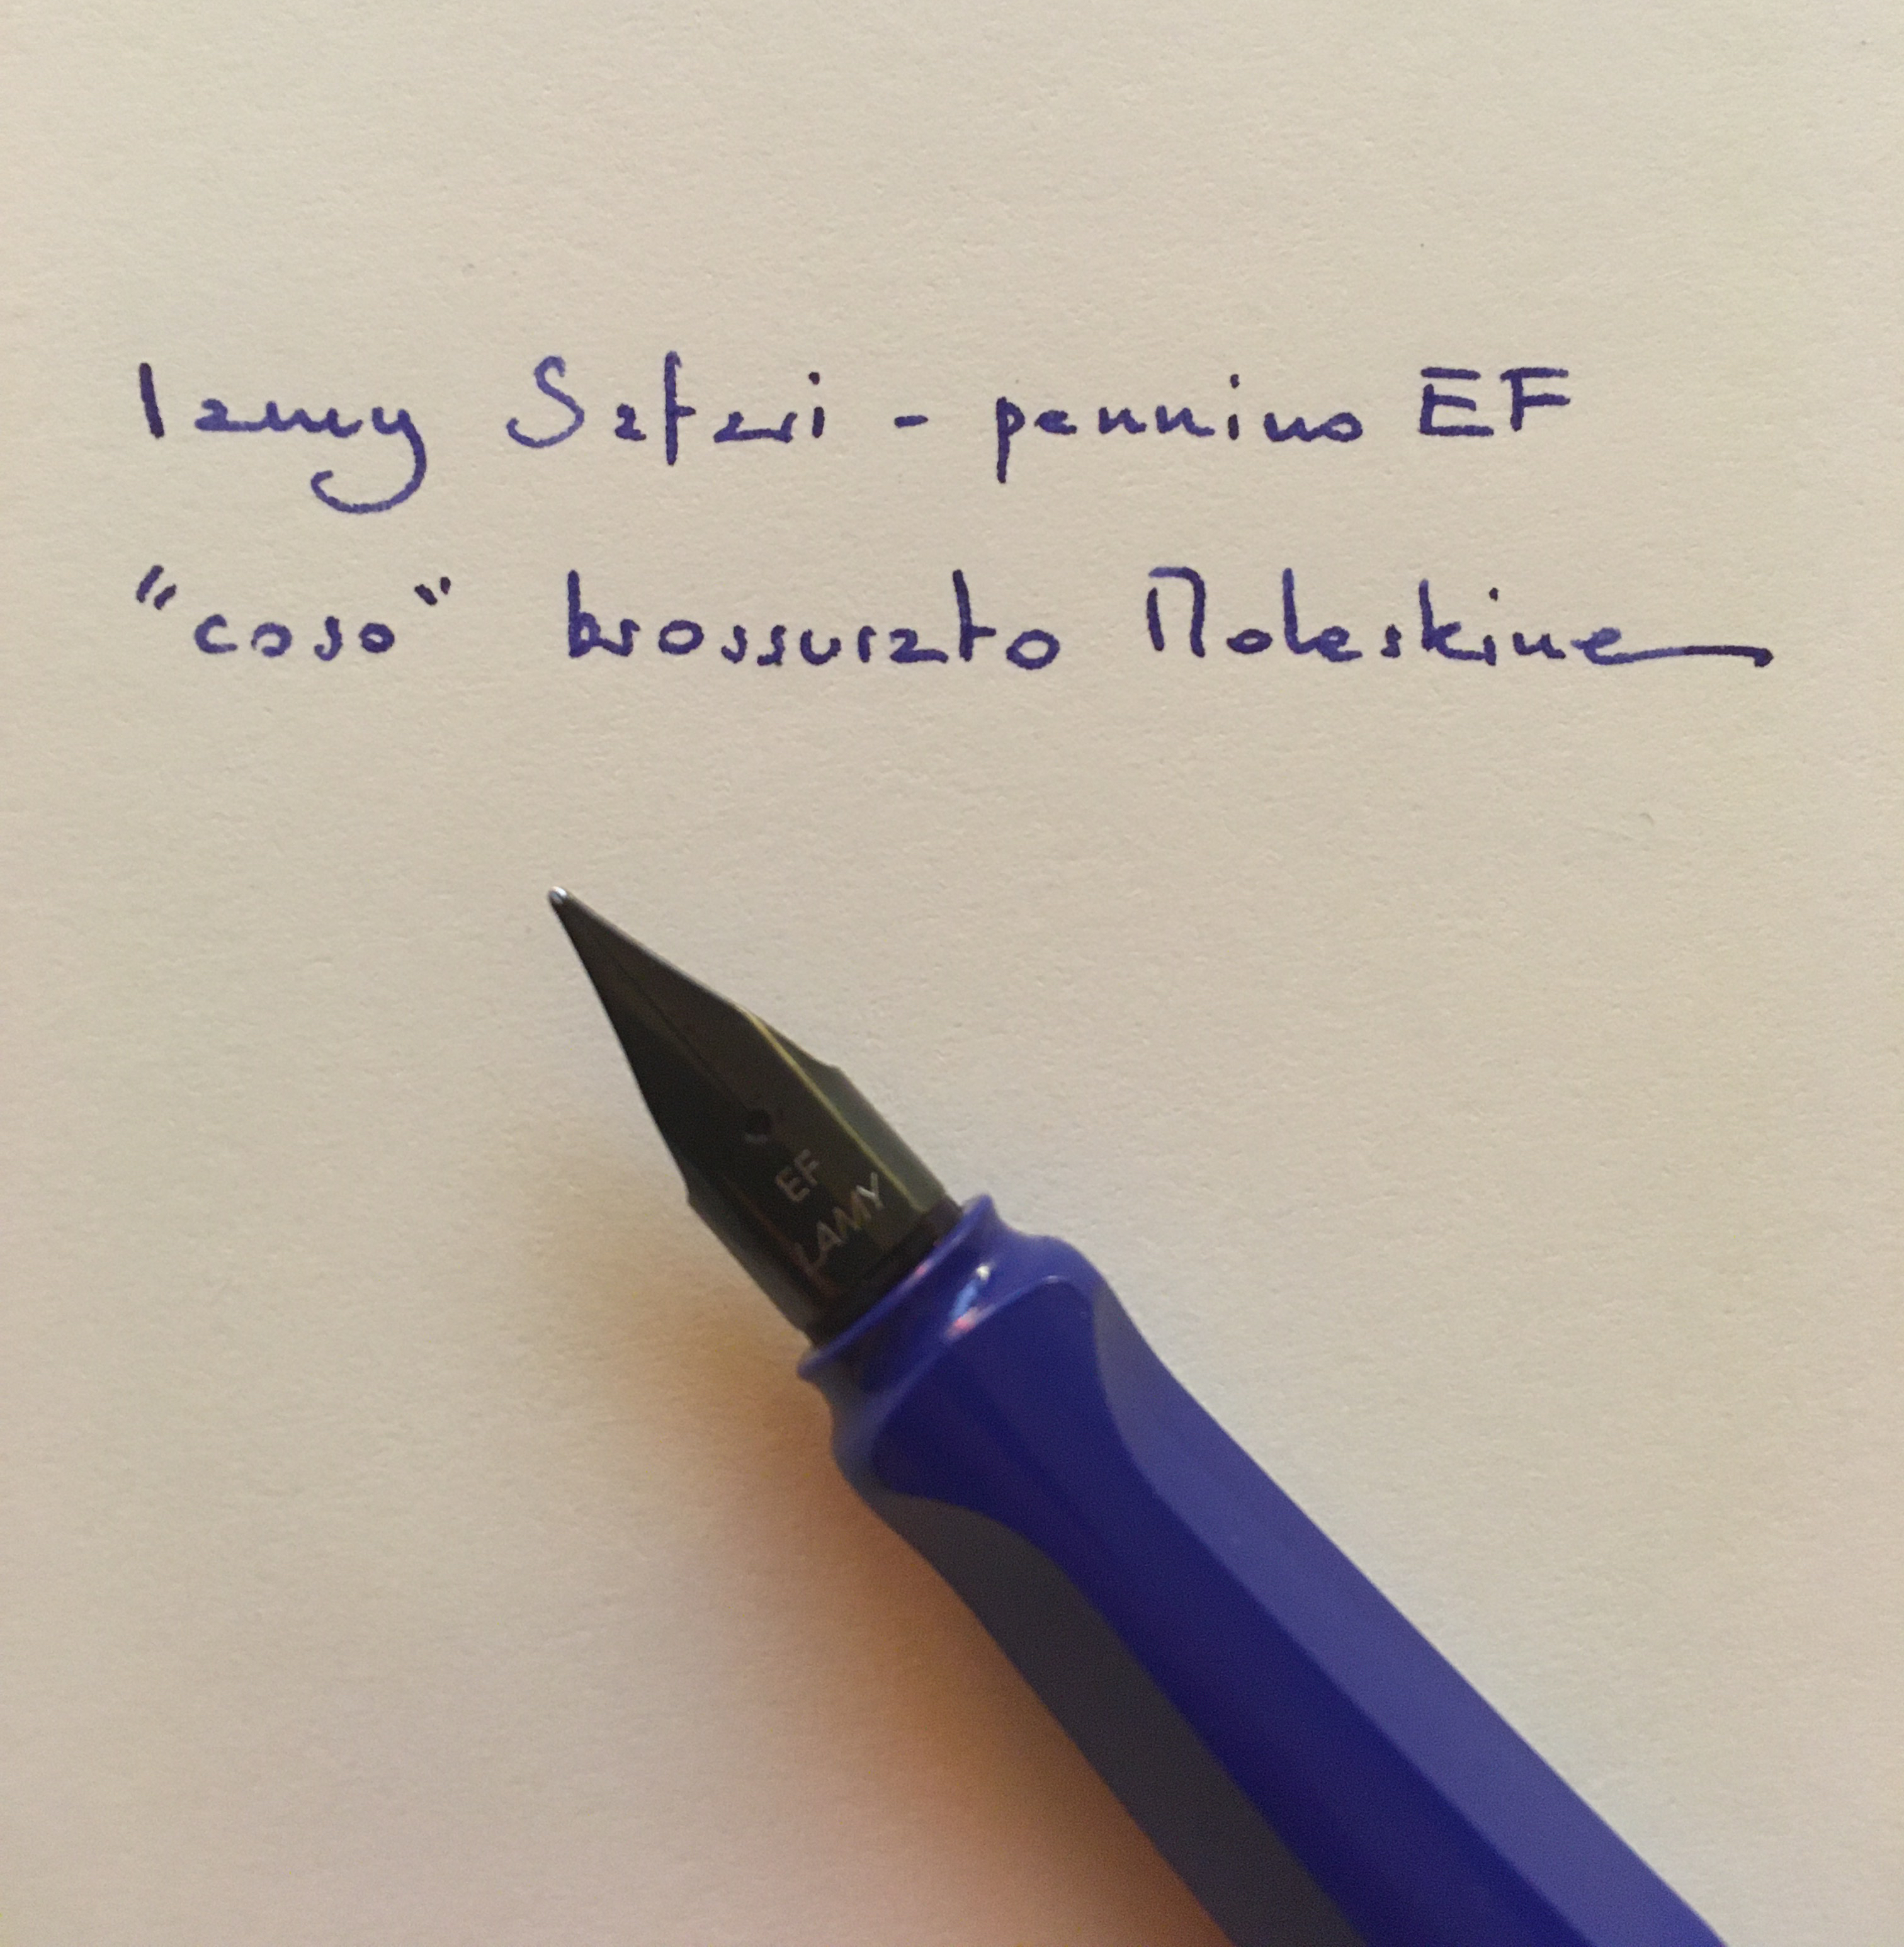 Lamy Safari - pennino EF
"coso" brossurato Moleskine
EF
LAMY